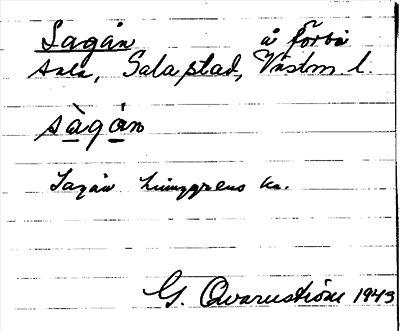 Sagån å förbi
Sala, Sala stad, Västm l.
sàgán
Sagån Ljunggrens ka.
G. Qvarnström 1943